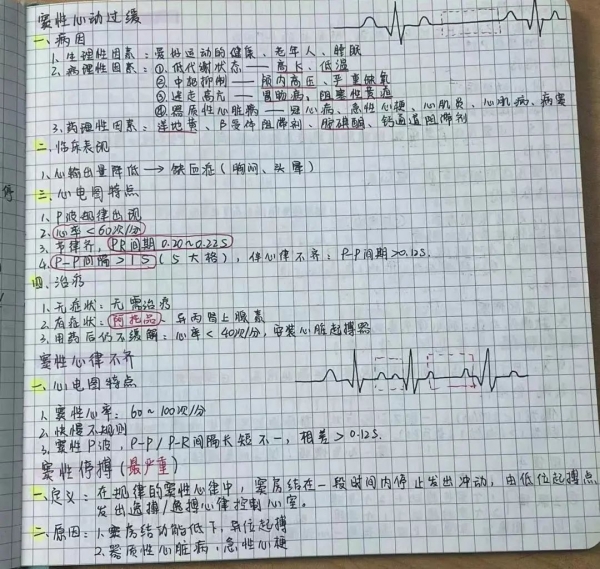 窦性心动过缓
一、病因
1、生理性因素：爱好运动的健康、老年人、睡眠
2、病理性因素：①低代谢状态——高K、低温
②中枢抑制——颅内高压、严重缺氧
③迷走亢——胃肠病、阻塞性黄疸
④器质性心脏病——冠心病、急性心梗、心肌炎、心肌病、病窦
3、药理性因素：洋地黄、β受体阻滞剂、胺碘酮、钙通道阻滞剂
二、临床表现
1、心输出量降低→缺血症（胸闷、头晕）
三、心电图特点
1、P波规律出现
2、心率<60次/分
3、节律齐，PR间期0.20~0.22S
4、P-P间隔>1S（5大格），伴心律不齐：P-P间期>0.12S.
四、治疗
1、无症状：无需治疗
2、有症状：阿托品、异丙肾上腺素
3、用药后仍不缓解：心率<40次/分，安装心脏起搏器
窦性心律不齐
一、心电图特点
1、窦性心率：60~100次/分
2、快慢不规则
3、窦性P波，P-P/P-R间隔长短不一，相差>0.12S.
窦性停搏（最严重）
一、定义：在规律的窦性心律中，窦房结在一段时间内停止发出冲动，由低位起搏点
发出逸搏/逸搏心律控制心室。
二、原因：1、窦房结功能低下，异位起搏
2、器质性心脏病，急性心梗
停